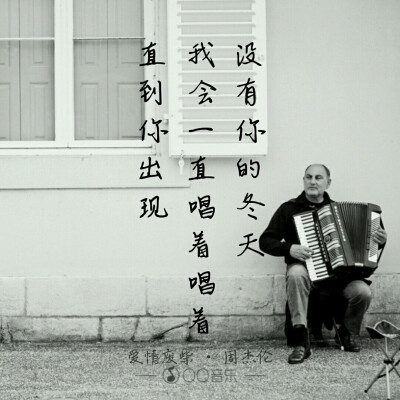 没有你的冬天
我会一直唱着唱着
直到你出现
爱情废柴·周杰伦
QQ音乐